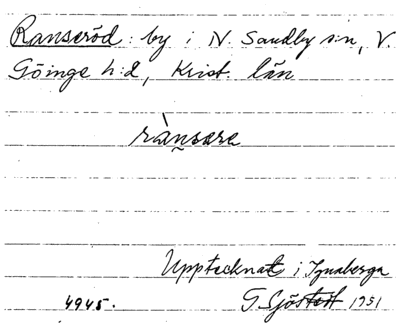 Ranseröd: by i N. Sandby s:n, V.
Göinge h:d, Krist. län
rànsera
Upptecknat i Ignaberga
4945. G. Sjöstedt 1951